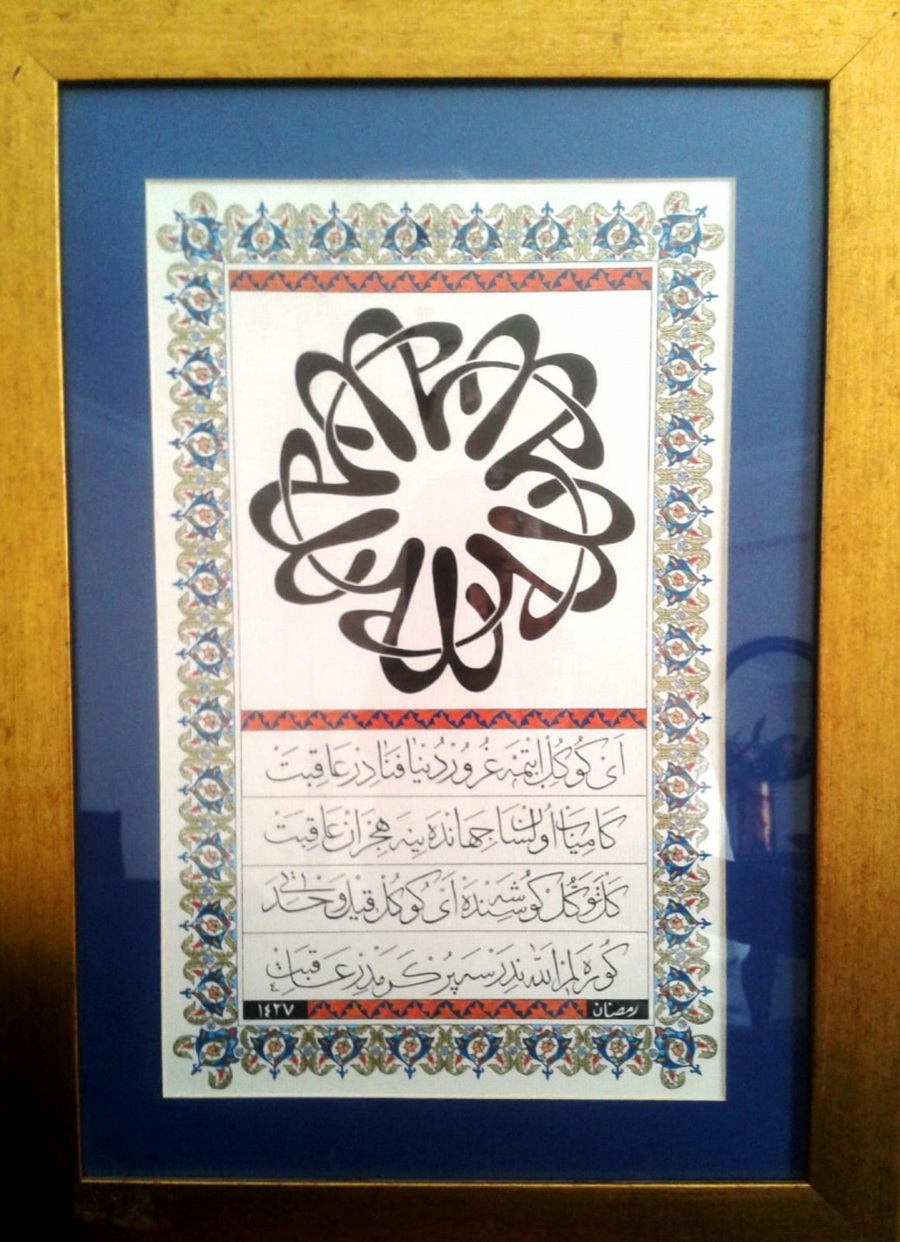 اَى كُوكُل اِيتْمَه غُرُورْ دُنْيَا فَنَادِرْ عَاقِبَتْ
كَامِيَابْ اُولْسَانْ جِهَانْدَه يِنَه هِجْرَانْ عَاقِبَتْ
كَلْ تَوَكُّلْ كُوشَه سِنْدَه اَى كُوكُلْ قِيلْ وَحْدَتى
كُورَه لِمْ اَللّٰه نَدِرْسَه پُرْ كَرَمْدِرْ عَاقِبَتْ
رمضان ١٤٢٧